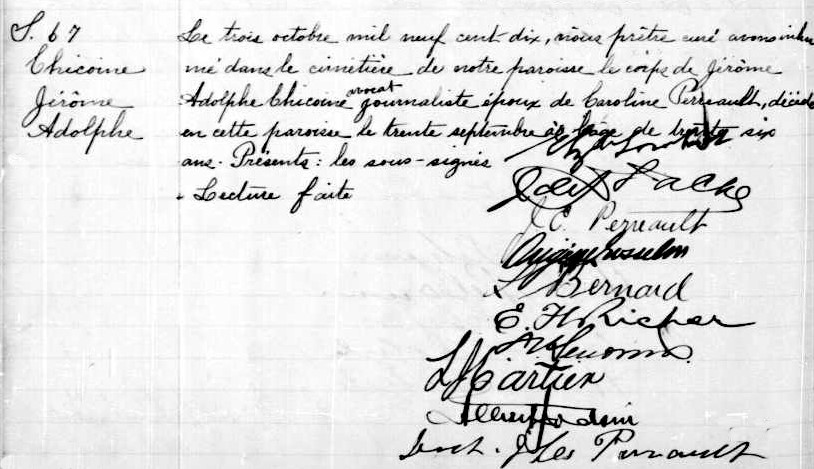 S. 67
Chicoine
Jérôme
Adolphe
Le trois octobre mil neuf cent dix, nous prêtre curé avons inhu
mé dans le cimetière de notre paroisse le corps de Jérôme
Adolphe Chicoine avocat journaliste époux de Caroline Perreault, décédé
en cette paroisse le trente septembre à l'âge de trente six
ans. Présents: les sous-signés
. Lecture faite
J. E. Perreault
L Bernard
E. H. Richer
L J Cartier
Perrault